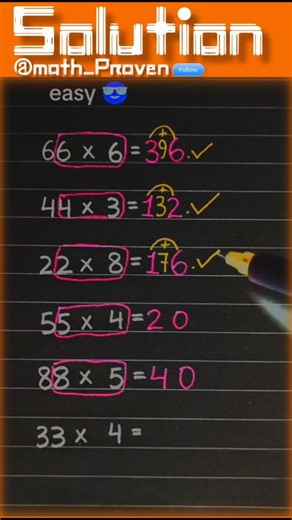 Solution
@math_Proven Follow
easy 😎
66 × 6 = 396.✓
+
44 × 3 = 132.✓
+
22 × 8 = 176.✓
+
55 × 4 = 20
88 × 5 = 40
33 × 4 =